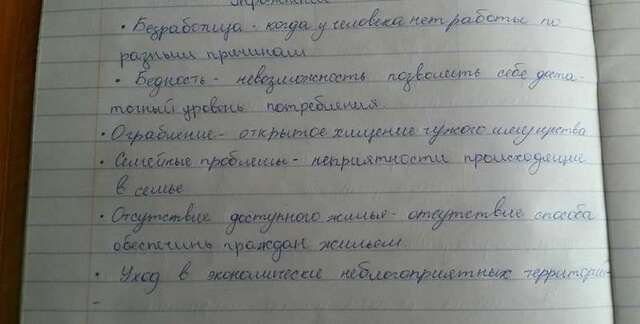 • Безработица - когда у человека нет работы по
разным причинам
• Бедность - невозможность позволить себе доста-
точный уровень потребления
• Ограбление - открытое хищение чужого имущества
• Семейные проблемы - неприятности происходящие
в семье
• Отсутствие доступного жилья - отсутствие способа
обеспечить граждан жильем
• Уход в экономические неблагоприятных территори-
-